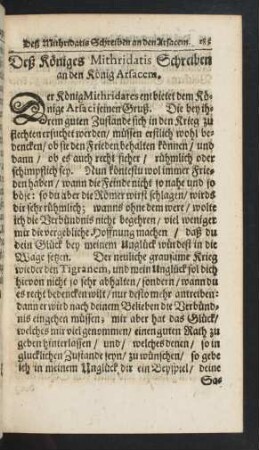 Deß Mithridatis Schreiben an den Arsacem. 185
Deß Königes Mithridatis Schreiben
an den König Arsacem.
Der König Mithridates entbietet dem Kö-
nige Arsaci seinen Gruß. Die bey ih-
rem guten Zustande sich in den Krieg zu
flechten ersuchet werden / müssen erstlich wohl be-
dencken / ob sie den Frieden behalten können / und
dann / ob es auch recht sicher / rühmlich oder
schimpflich sey. Nun köntestu wol immer Frie-
den haben / wann die Feinde nicht so nahe und so
böse: so du aber die Römer wirst schlagen / wirds
dir sehr rühmlich; wanns ohne dem wer / wolte
ich die Verbündnis nicht begehren / viel weniger
mir die vergebliche Hoffnung machen / daß du
dein Glück bey meinem Unglück würdest in die
Wage setzen. Der neuliche grausame Krieg
wieder den Tigranem, und mein Unglück sol dich
hievon nicht so sehr abhalten / sondern / wann du
es recht bedencken wilt / nur desto mehr antreiben:
dann er wird nach deinem Belieben die Verbünd-
nis eingehen müssen; mir aber hat das Glück /
welches mir viel genommen / einen guten Rath zu
geben hinterlassen / und / welches denen / so in
glucklichen Zustande seyn / zu wünschen / so gebe
ich in meinem Unglück dir ein Beyspiel / deine
Sa-